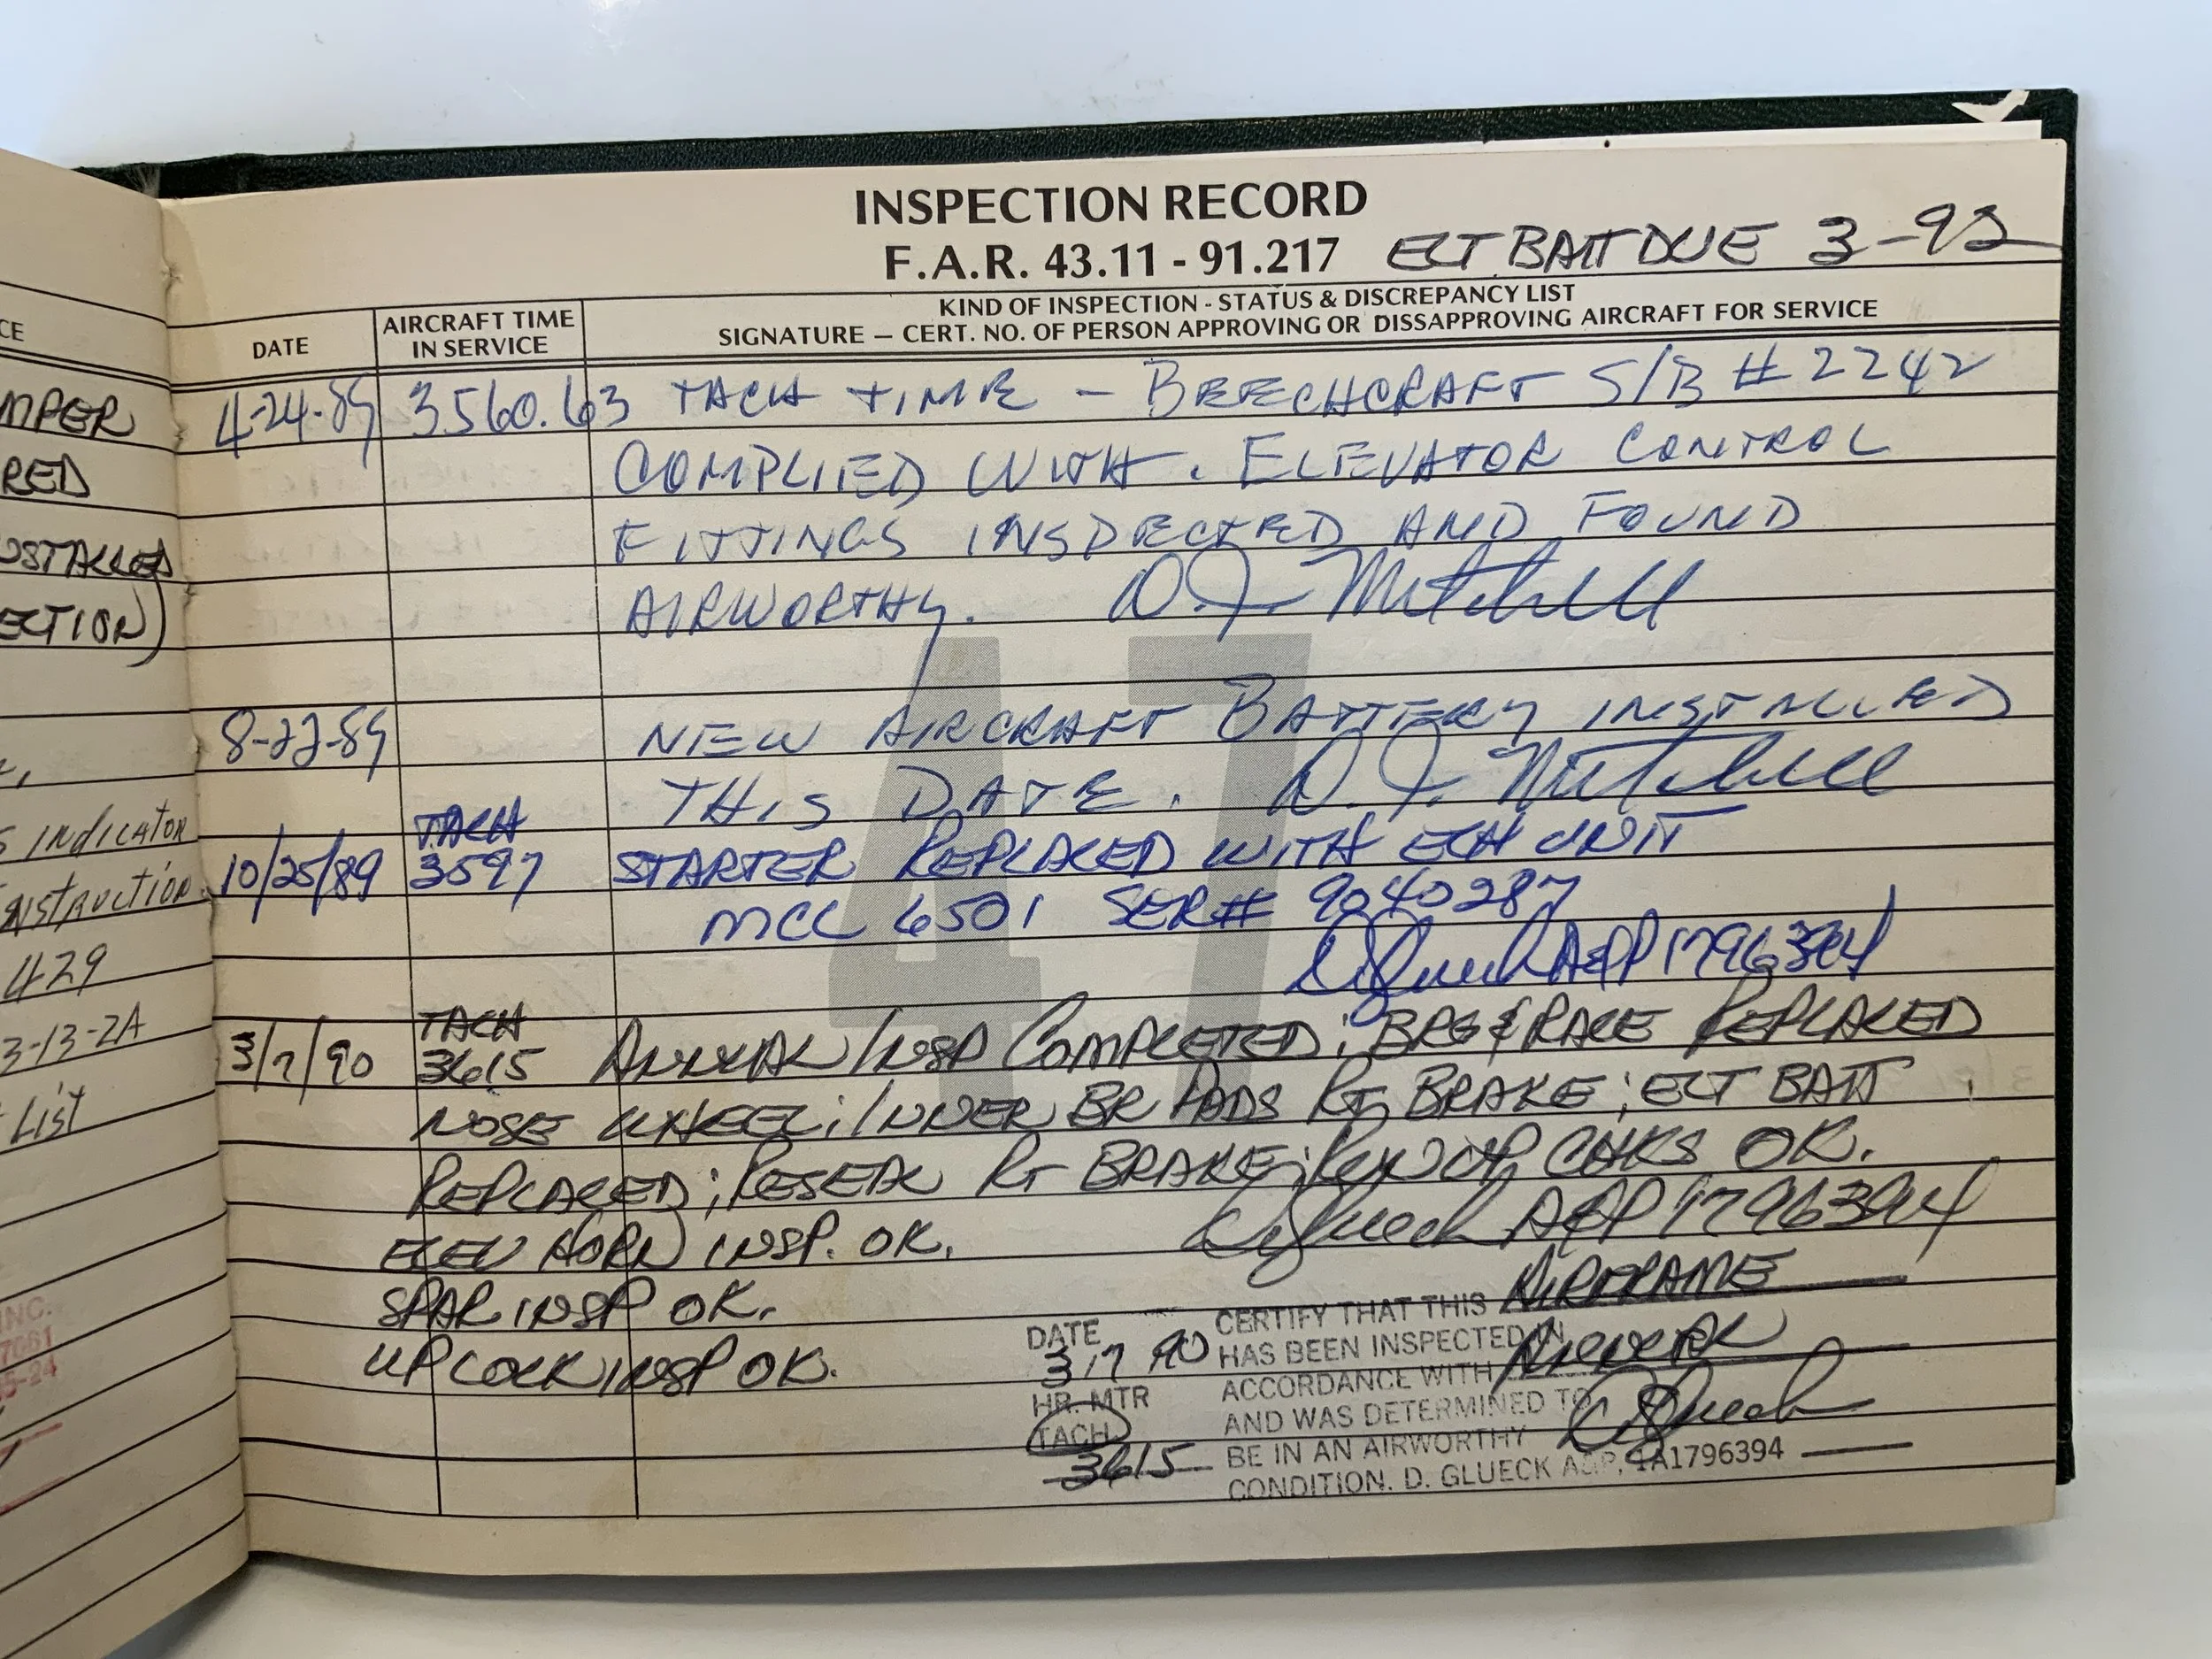 CE
MPER
RED
NSTALLED
ECTION)
S INDICATOR
INSTRUCTION
429
3-13-2A
LIST
INC.
7661
5-24
INSPECTION RECORD
F.A.R. 43.11 - 91.217 ELT BATT DUE 3-92
KIND OF INSPECTION - STATUS & DISCREPANCY LIST
DATE AIRCRAFT TIME IN SERVICE SIGNATURE — CERT. NO. OF PERSON APPROVING OR DISSAPPROVING AIRCRAFT FOR SERVICE
4-24-89 3560.63 TACH TIME - BEECHCRAFT S/B # 2242
COMPLIED WITH. ELEVATOR CONTROL
FITTINGS INSPECTED AND FOUND
AIRWORTHY. D.J. Mitchell
47
8-22-89 NEW AIRCRAFT BATTERY INSTALLED
THIS DATE. D.J. Mitchell
TACH
10/25/89 3597 STARTER REPLACED WITH ECH UNIT
MCL 6501 SER# 9040287
D Glueck A&P 1796394
TACH
3/7/90 3615 ANNUAL INSP COMPLETED; BRG & RACE REPLACED
NOSE WHEEL; INNER BR PADS RT BRAKE; ELT BATT
REPLACED; RESEAL RT BRAKE; RUN UP CHKS OK.
ELEV HORN INSP. OK. D Glueck A&P 1796394
SPAR INSP OK.
UPLOCK INSP OK.
DATE CERTIFY THAT THIS AIRFRAME
3 17 90 HAS BEEN INSPECTED IN
HR. MTR ACCORDANCE WITH
TACH AND WAS DETERMINED TO D Glueck
3615 BE IN AN AIRWORTHY
CONDITION. D. GLUECK A&P, IA1796394